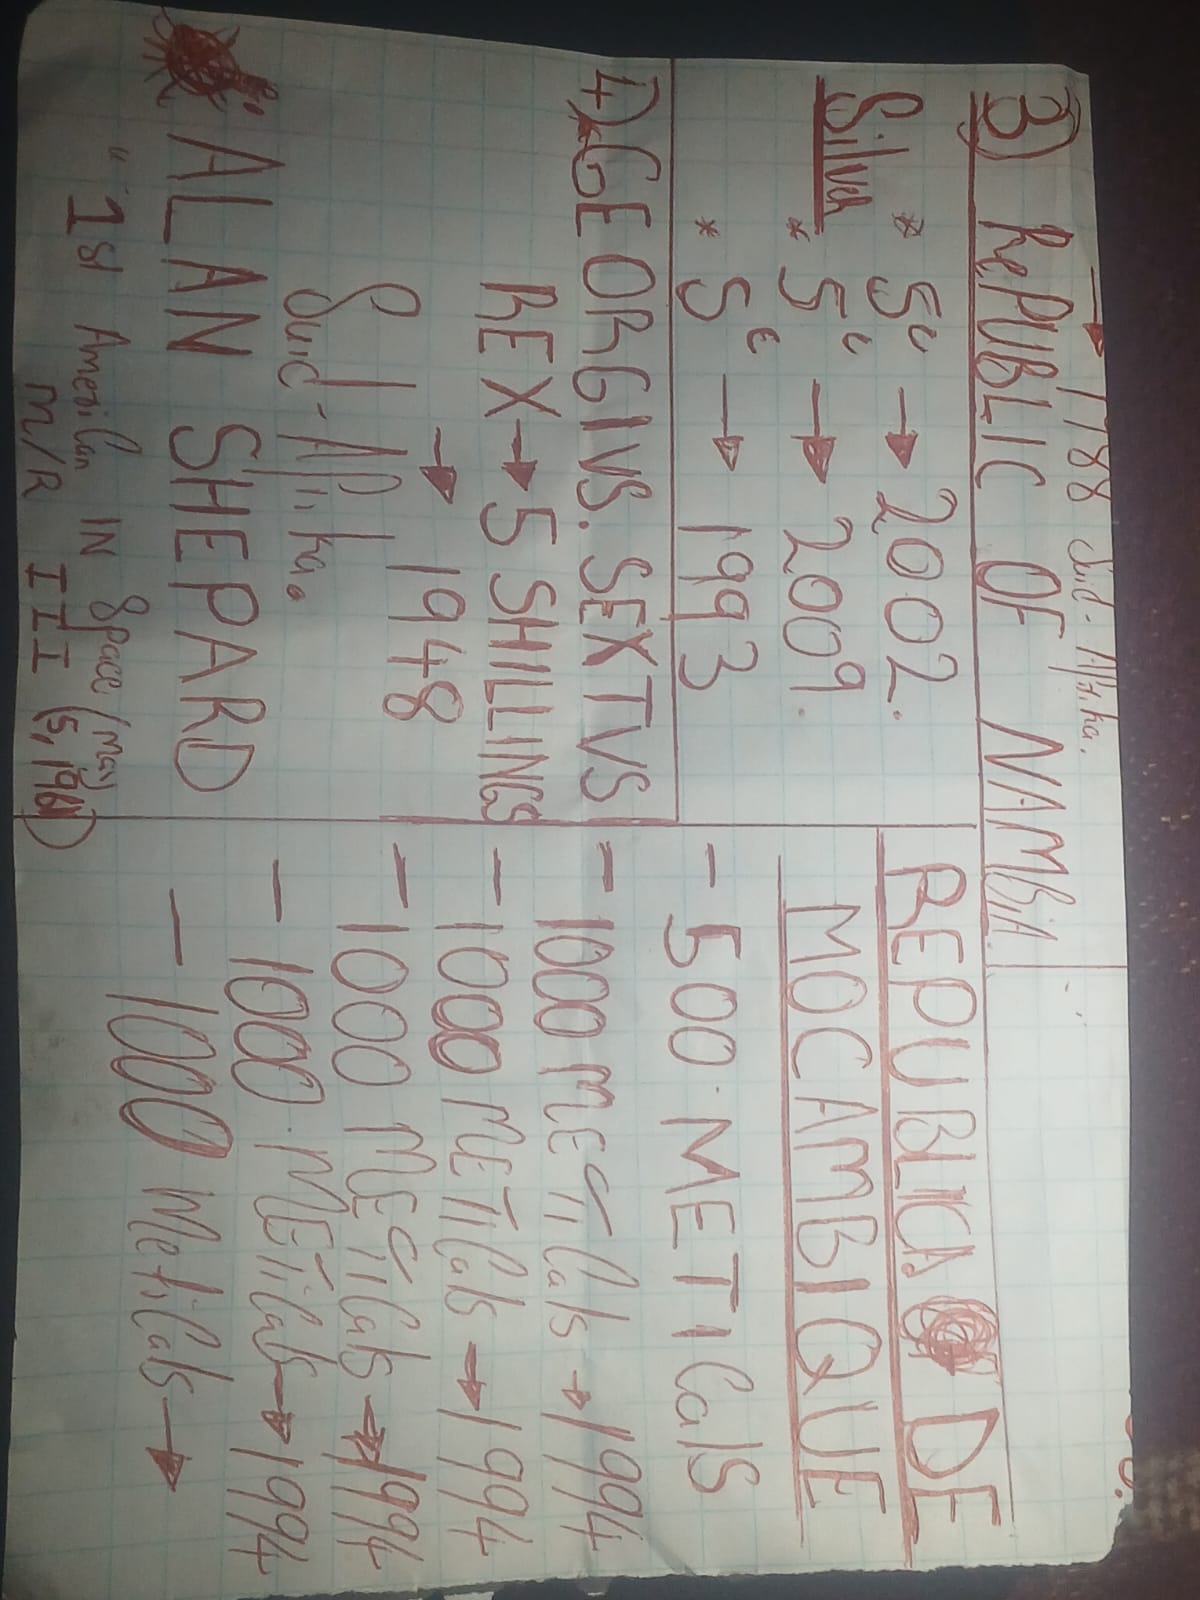 → 1988 Suid-Afrika.
3) RePUBLIC OF NAMBIA
* 5c → 2002.
Silver * 5c → 2009.
* 5c → 1993
4) GEORGIVS. SEXTVS
REX → 5 SHILLINGS
→ 1948
Suid-Afrika.
ALAN SHEPARD
"1st American IN Space (May
M/R III 5, 1961)
REPUBLICA DE
MOCAMBIQUE
- 500. METICalS
- 1000 METiCals → 1994
- 1000 METiCals → 1994
- 1000 METiCals → 1994
- 1000. METiCals → 1994
- 1000 MetiCals →